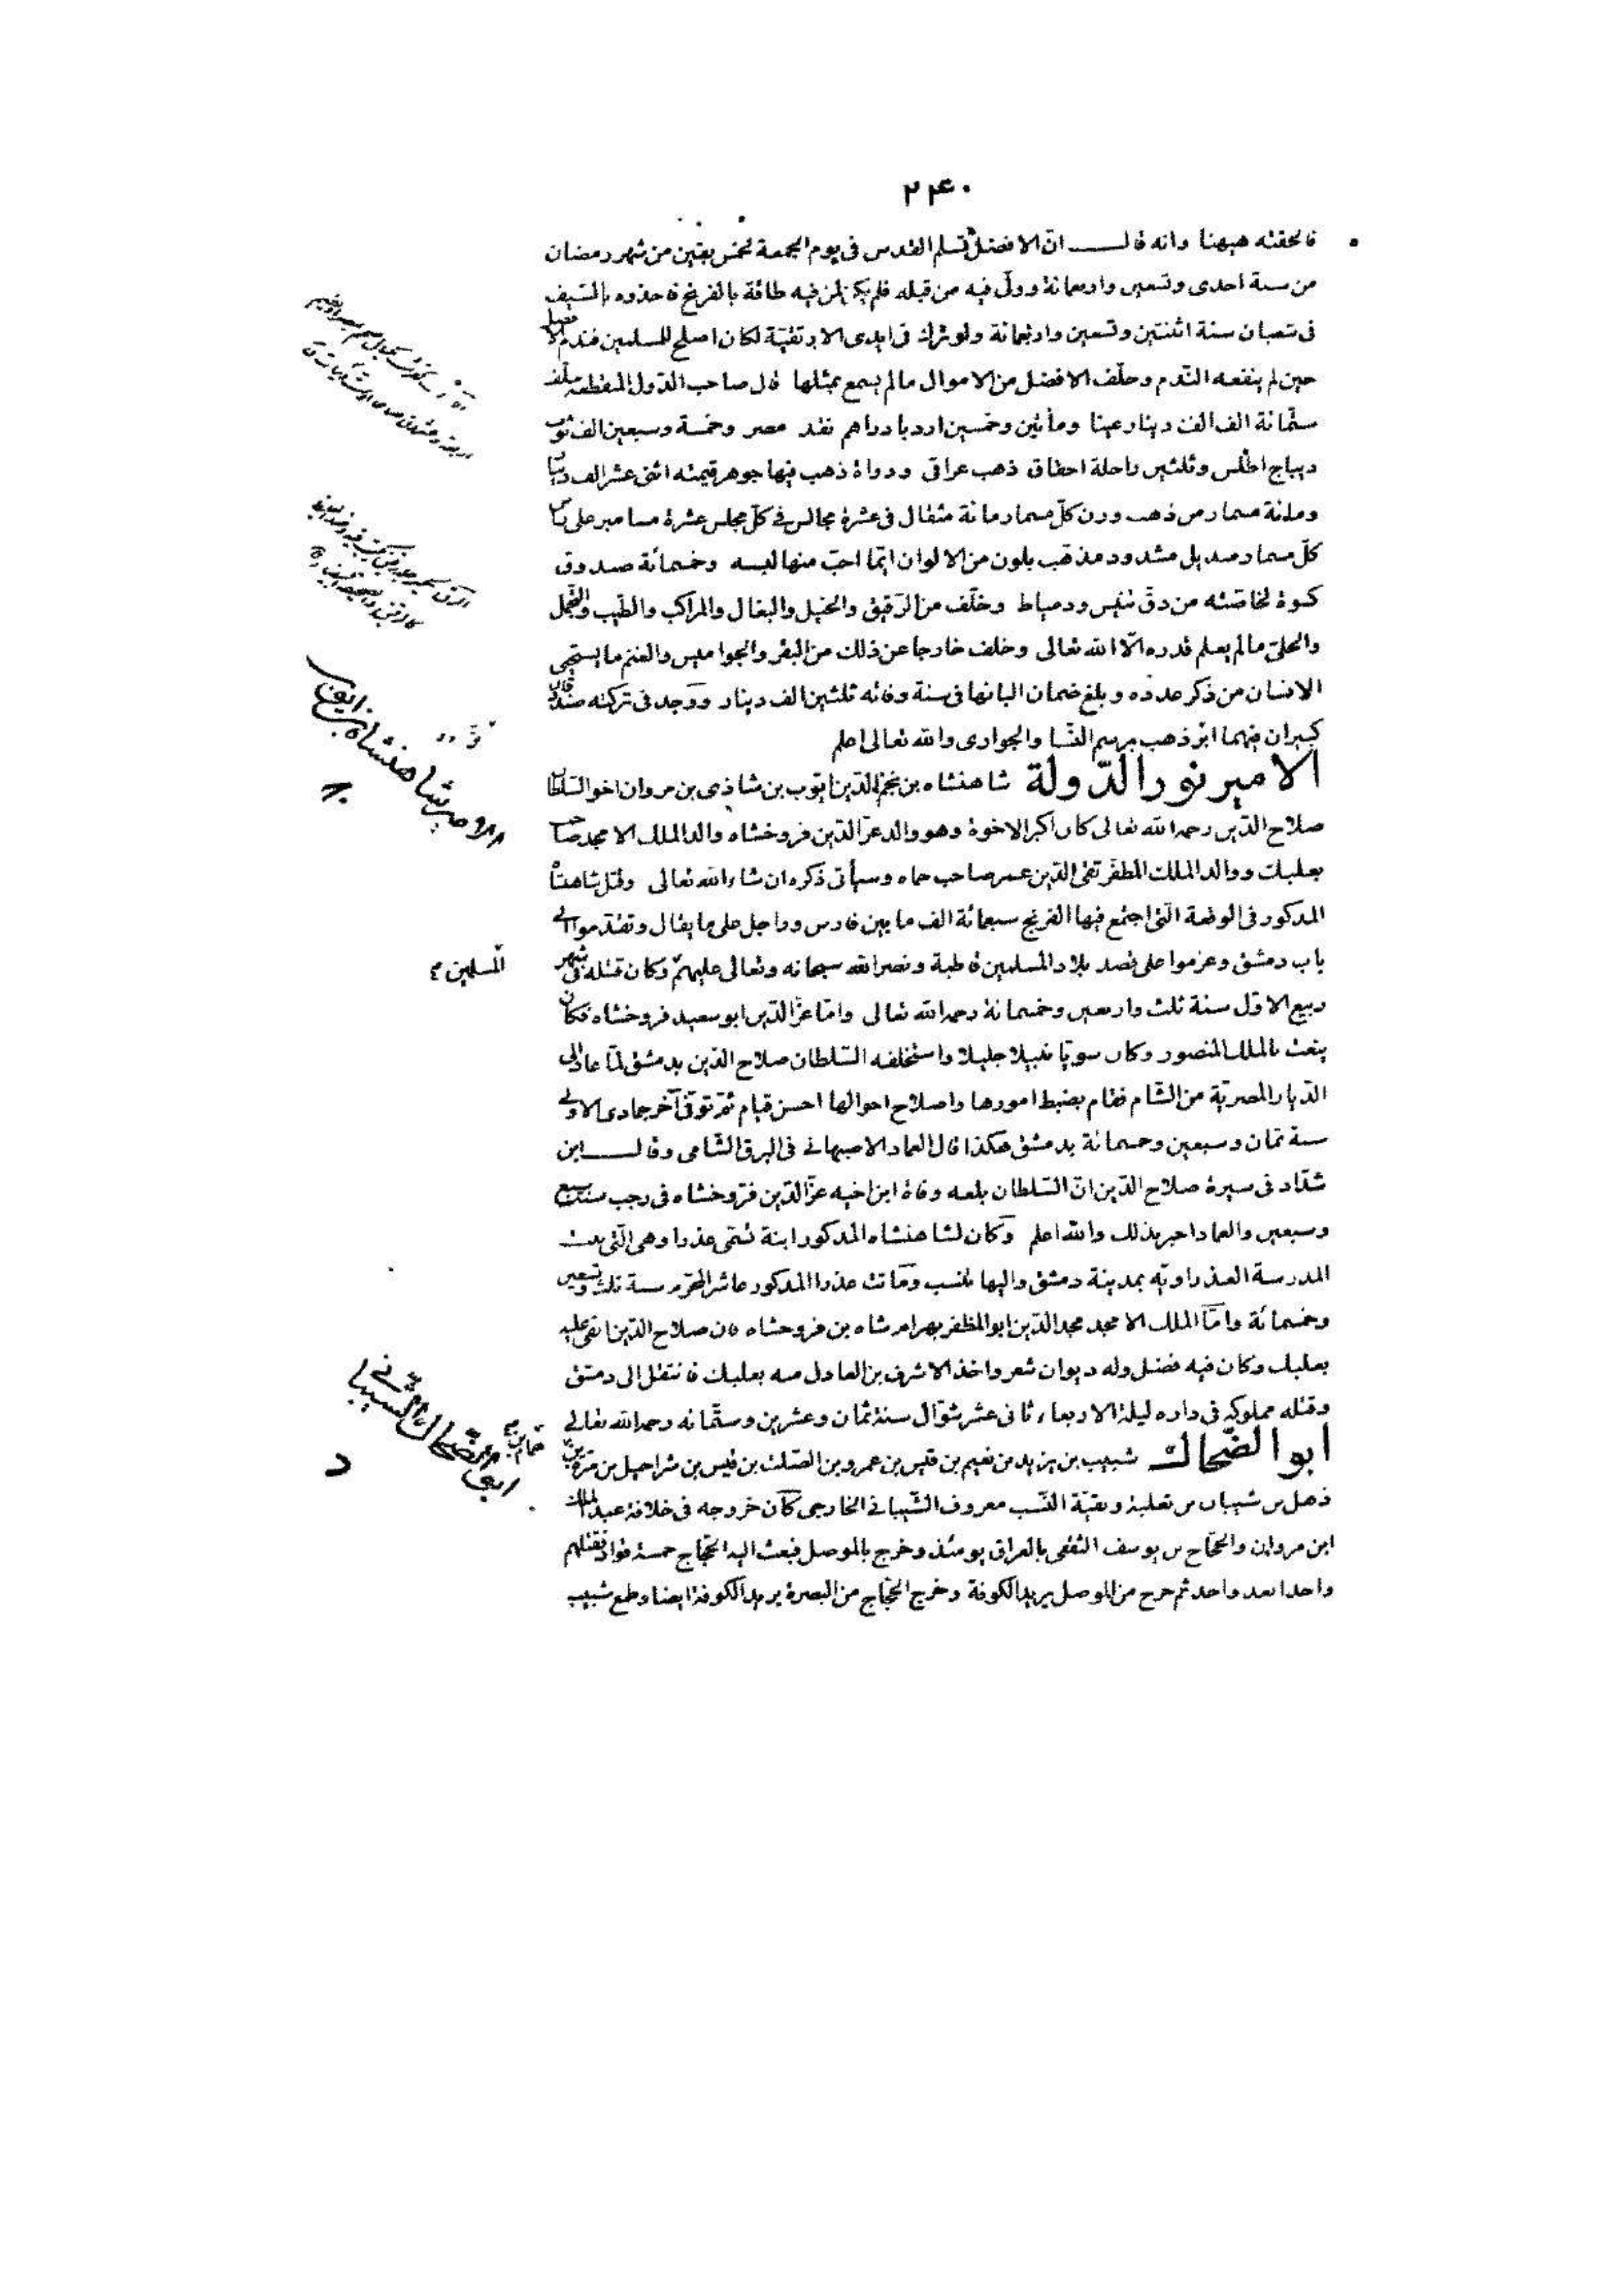 ٢٤٠
فالحقته هيهنا وانه قال انّ الافضل تسلم القدس فى يوم الجمعة لخمس بقين من شهر رمضان
من سنة احدى وتسعين واربعمائة وولّى فيه من قبله فلم يكن لمن فيه طاقة بالفرنج فاخذوه بالسّيف
فى شعبان سنة اثنتين وتسعين واربعمائة ولو ترك فى ايدى الارتقيّة لكان اصلح للمسلمين فندم الافضل
حين لم ينفعه النّدم وخلّف الافضل من الاموال ما لم يسمع بمثلها قال صاحب الدّول المنقطعه خلّف
ستّمائة الف الف دينار عينا ومأتين وخمسين اردبا دراهم نقد مصر وخمسة وسبعين الف ثوب
ديباج اطلس وثلثين راحلة احقاق ذهب عراقى ودواة ذهب فيها جوهر قيمته اثنى عشر الف دينار
ومائة مسمار من ذهب وزن كلّ مسمار مائة مثقال فى عشرة مجالس فى كلّ مجلس عشرة مسامير على
كلّ مسمار منديل مشدود مذهّب بلون من الالوان ايّما احبّ منها لبسه وخمسمائة صندوق
كسوة لخاصّته من دقّ تنيس ودمياط وخلّف من الرّقيق والخيل والبغال والمراكب والطّيب والتّجمل
والحلىّ ما لم يعلم قدره الّا الله تعالى وخلف خارجا عن ذلك من البقر والجواميس والغنم ما يستحيى
الانسان من ذكر عدده وبلغ ضمان البانها فى سنة وفاته ثلثين الف دينار ووجد فى تركته صندوقان
كبيران فيهما ابر ذهب برسم النّسا والجوارى والله تعالى اعلم
الامير نور الدّولة شاهنشاه بن نجم الدّين ايّوب بن شاذى بن مروان اخو السّلطان
صلاح الدّين رحمه الله تعالى كان اكبر الاخوة وهو والد عزّ الدّين فروخشاه والد الملك الامجد صاحب
بعلبك ووالد الملك المظفر تقىّ الدّين عمر صاحب حماه وسيأتى ذكره ان شاء الله تعالى وقتل شاهنشاه
المذكور فى الوقعة الّتى اجتمع فيها الفرنج سبعمائة الف ما بين فارس وراجل على ما يقال وتقدّموا الى
باب دمشق وعزموا على قصد بلاد المسلمين قاطبة ونصر الله سبحانه وتعالى عليهم وكان قتله فى شهر
المسلمين
ربيع الاوّل سنة ثلث واربعين وخمسمائة رحمه الله تعالى وامّا عزّ الدّين ابو سعيد فروخشاه فكان
ينعت بالملك المنصور وكان سريّا نبيلا جليلا واستخلفه السّلطان صلاح الدّين بدمشق لمّا عاد الى
الدّيار المصريّة من الشّام فقام بضبط امورها واصلاح احوالها احسن قيام ثمّ توفّى آخر جمادى الاولى
سنة ثمان وسبعين وخمسمائة بدمشق هكذا قال العماد الاصبهانى فى البرق الشّامى وقال ابن
شدّاد فى سيرة صلاح الدّين انّ السّلطان بلغه وفاة ابن اخيه عزّ الدّين فرّوخشاه فى رجب سنة سبع
وسبعين والعماد اخبر بذلك والله اعلم وكان لشاهنشاه المذكور ابنة تسمّى عذرا وهى الّتى بنت
المدرسة العذراويّه بمدينة دمشق واليها تنسب وماتت عذرا المذكور عاشر المحرّم سنة ثلث وتسعين
وخمسمائة وامّا الملك الامجد مجد الدّين ابو المظفر بهرام شاه بن فروخشاه فان صلاح الدّين ابقى عليه
بعلبك وكان فيه فضل وله ديوان شعر واخذ الاشرف بن العادل منه بعلبك فانتقل الى دمشق
وقتله مملوكه فى داره ليلة الاربعاء ثانى عشر شوّال سنة ثمان وعشرين وستّمائه رحمه الله تعالى
ابو الضّحاك شبيب بن يزيد بن نعيم بن قيس بن عمرو بن الصّلت بن قيس بن شراحيل بن مرّة بن
ذهل بن شيبان بن ثعلبة وبقيّة النّسب معروف الشّيبانى الخارجى كان خروجه فى خلافة عبد الملك
ابن مروان والحجّاج بن يوسف الثّقفى بالعراق يومئذ وخرج بالموصل فبعث اليه الحجّاج خمسة قواد فقتلهم
واحدا بعد واحد ثم خرج من الموصل يريد الكوفة وخرج الحجّاج من البصرة يريد الكوفة ايضا وطمع شبيب